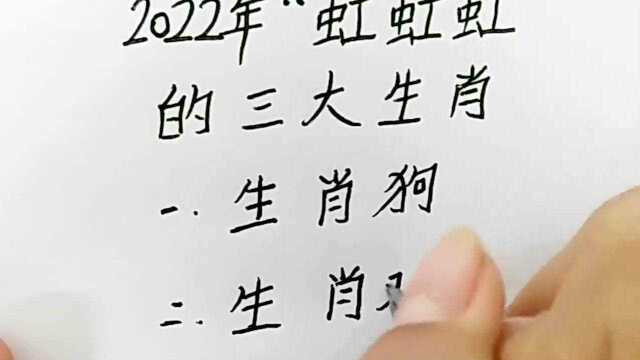 2022年“虹虹虹
的三大生肖
一.生肖狗
二.生肖